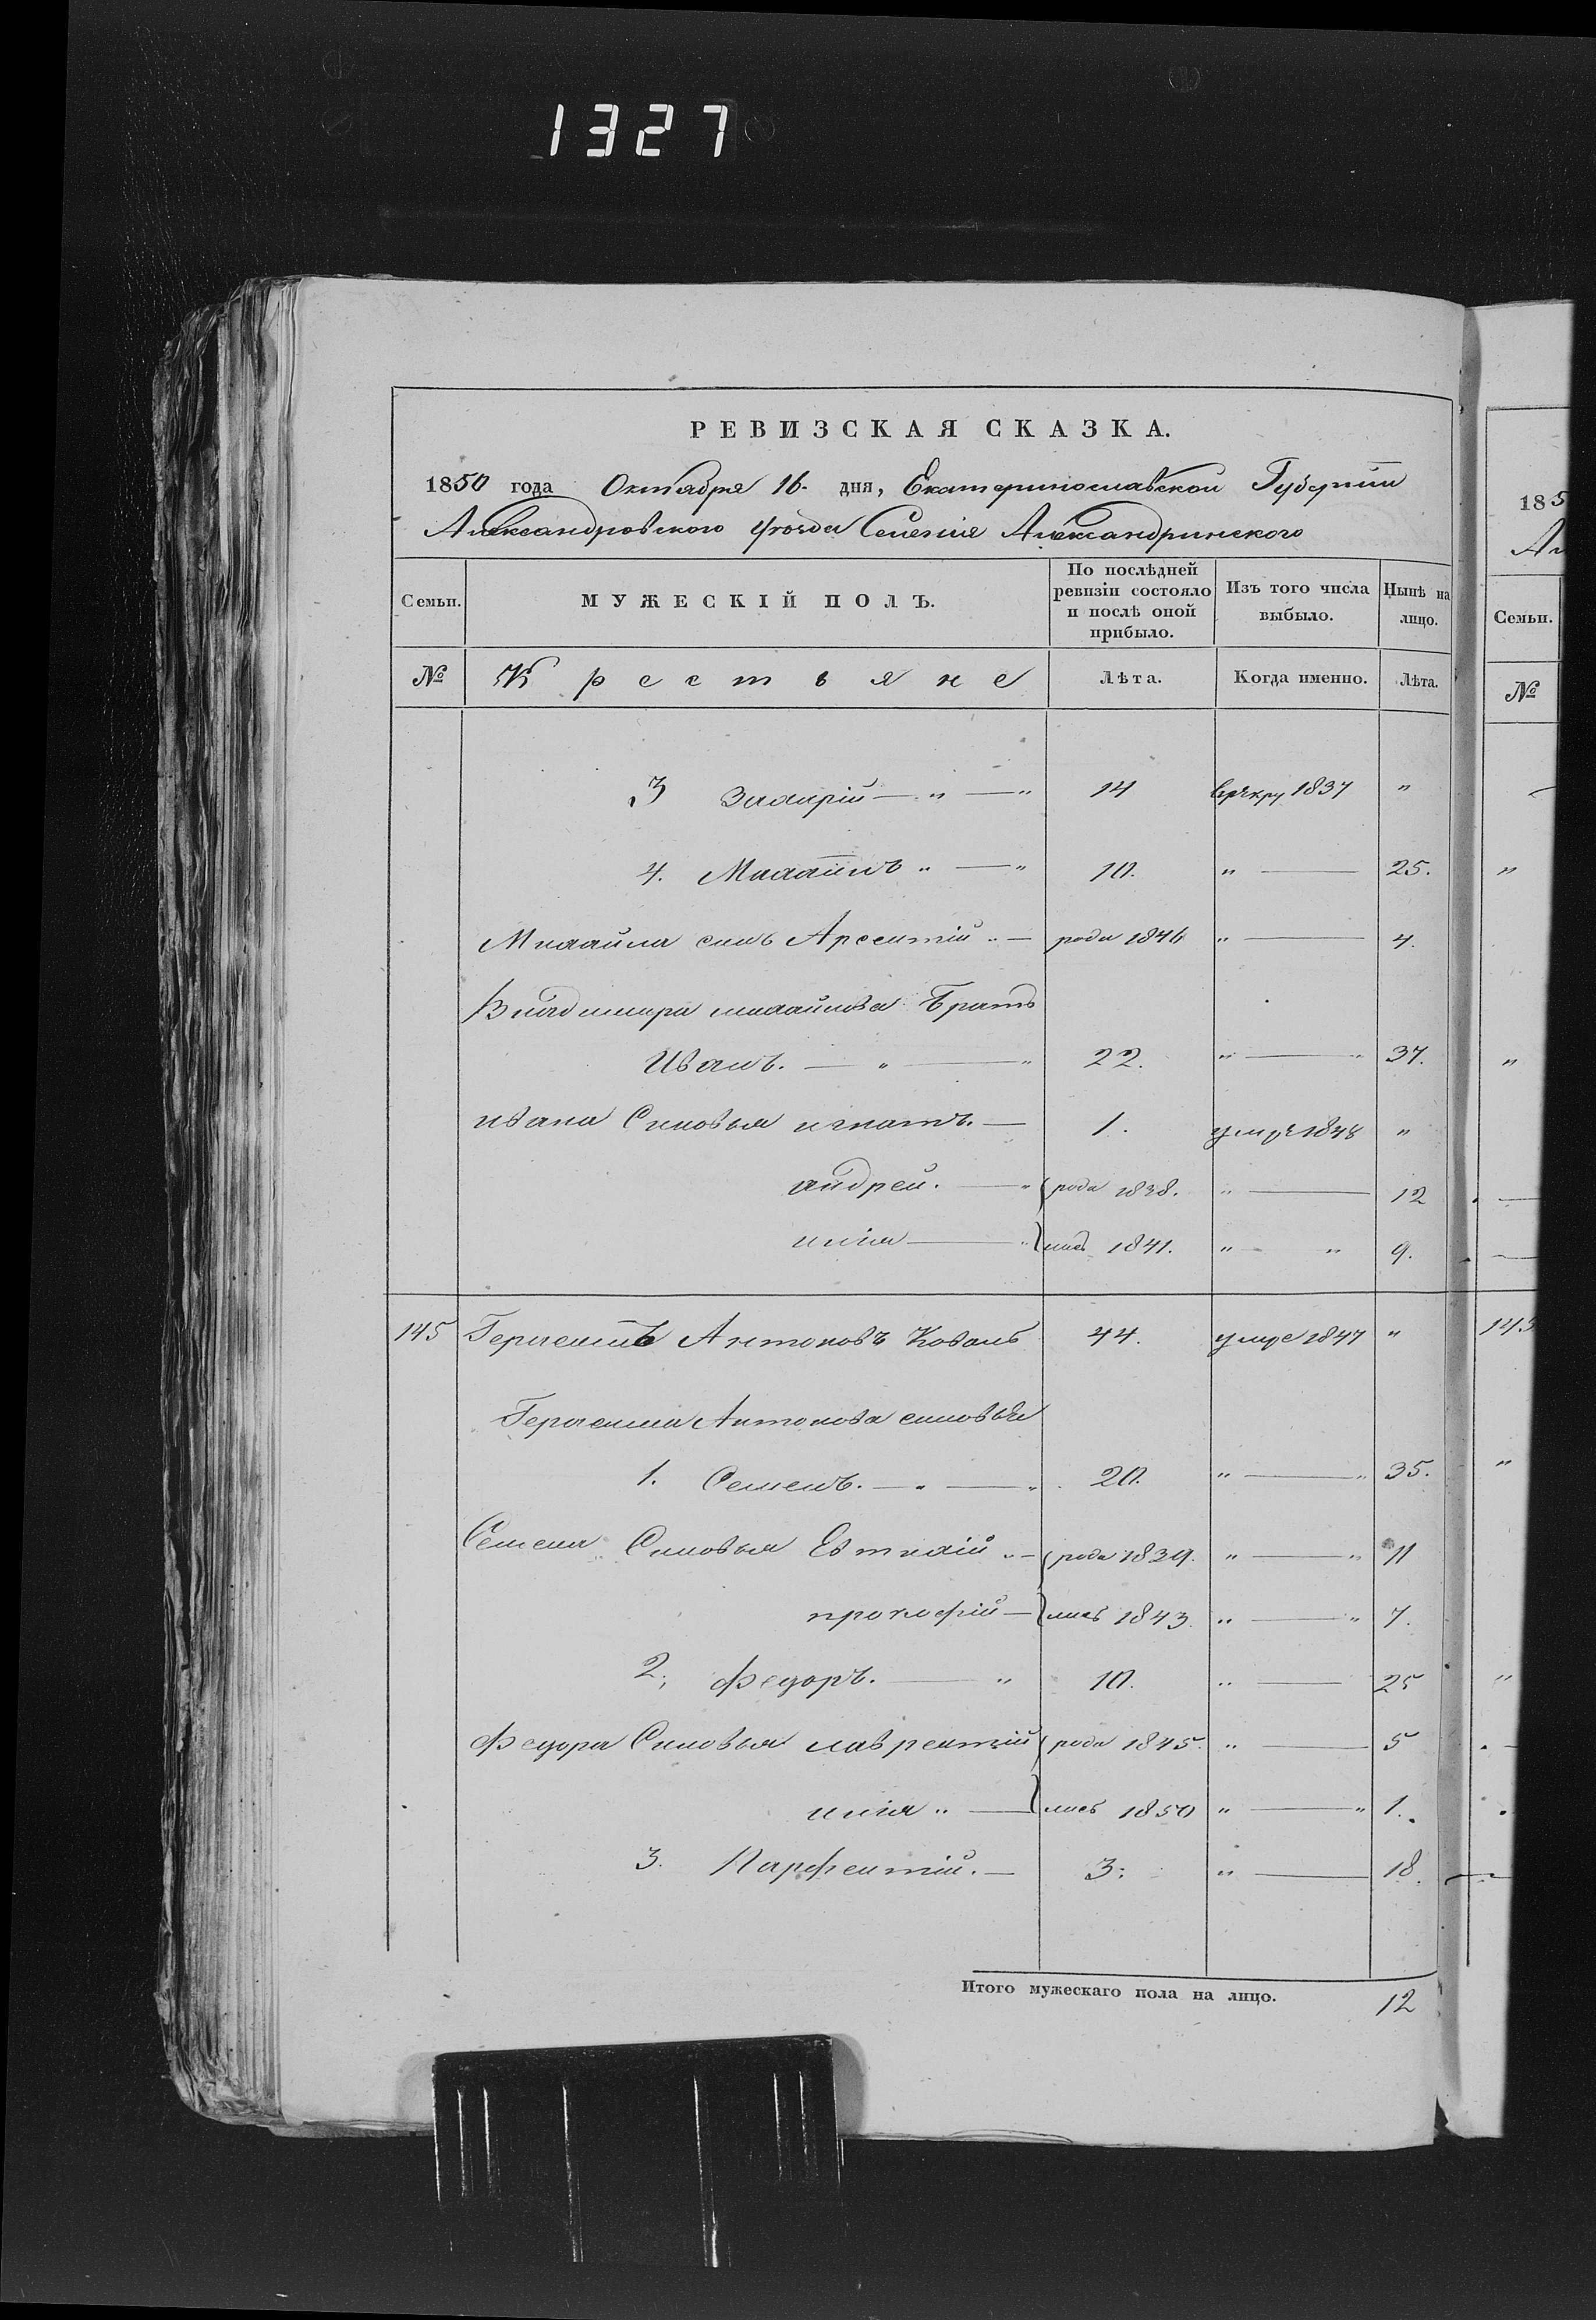 1327
РЕВИЗСКАЯ СКАЗКА.
1850 года Октября 16. дня, Екатеринославской Губернии
Александровского уѣзда Селенія Александринского
Семьи. МУЖЕСКІЙ ПОЛЪ. По послѣдней ревизіи состояло и послѣ оной прибыло. Изъ того числа выбыло. Нынѣ на лицо.
№ Крестьяне Лѣта. Когда именно. Лѣта.
3 Захарій — " — " 14 1837 "
4. " — " 10. " — 25.
Михайла сынъ Арсентій " — рода 1846 " — 4.
Владимира михайлова Братъ
Иванъ. — " — " 22. " — " 37.
ивана Сыновья игнатъ. — 1. умре 1848 "
андрей. — " рода 1838. " — 12
илія — " лись 1841. " — " 9.
145 Герасимъ Антоновъ Коваль 44. умре 1847 "
Герасима Антонова сыновья
1. Семенъ. — " — " 20. " — " 35.
Семена Сыновья Евтихій " — рода 1839. " — " 11
прокофій — лись 1843. " — " 7.
2. федоръ. — " 10. " — 25
федора Сыновья лаврентій рода 1845. " — 5
илія " — лись 1850 " — " 1.
3. Парфентій. — 3. " — 18.
Итого мужескаго пола на лицо. 12
185
Семьи.
№
145